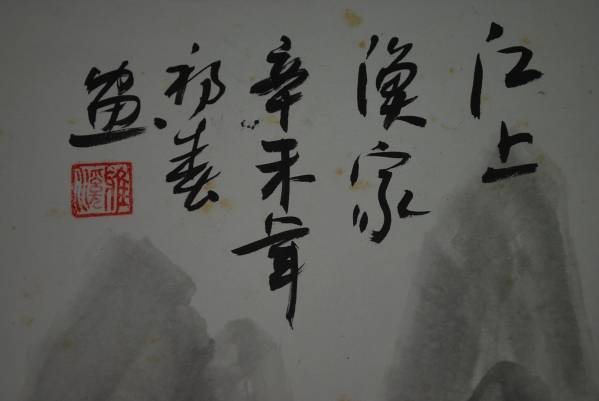 江上
漁家
辛未年
初春
畫